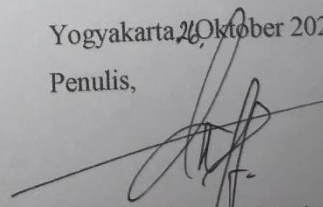 Yogyakarta, 26 Oktober 202
Penulis,